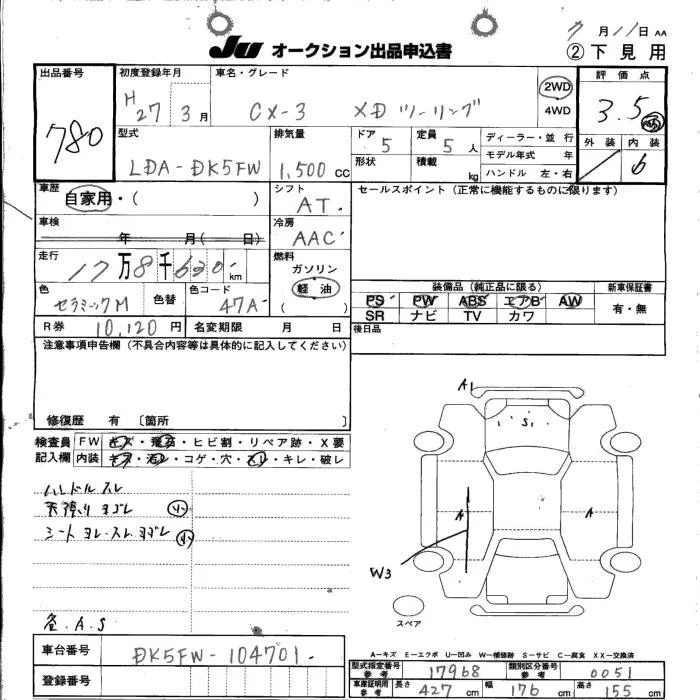 7月11日 AA
JU オークション出品申込書 ②下見用
出品番号 初度登録年月 車名・グレード 2WD 評価点
780 H27 3月 CX-3 XD ツーリング 4WD 3.5
型式 排気量 ドア 定員 ディーラー・並行 外装 内装
LDA-DK5FW 1,500cc 5 5人 モデル年式 年 6
形状 積載 kg ハンドル 左・右
車歴 シフト セールスポイント(正常に機能するものに限ります)
自家用・( ) AT
車検 冷房
年 月(日) AAC
走行 燃料
17万8千630km ガソリン
軽油
( )
色 色替 色コード
セラミックM 47A
装備品(純正品に限る) 新車保証書
PS PW ABS エアB AW 有・無
SR ナビ TV カワ
R券 10,120円 名変期限 月 日 後日品
注意事項申告欄(不具合内容等は具体的に記入してください)
修復歴 有 〔箇所 〕
検査員 FW キズ・飛石・ヒビ割・リペア跡・X要
記入欄 内装 キズ・汚レ・コゲ・穴・スレ・キレ・破レ
ハンドルスレ
天張りヨゴレ 小
シートヨレ・スレヨゴレ 小
A.S
A1
S1
A
A
W3
スペア
車台番号 DK5FW-104701
登録番号
A-キズ E-エクボ U-凹み W-補修跡 S-サビ C-腐食 XX-交換済
型式指定番号 参考 17968 類別区分番号 参考 0051
車庫証明用 参考 長さ 427cm 幅 176cm 高さ 155cm